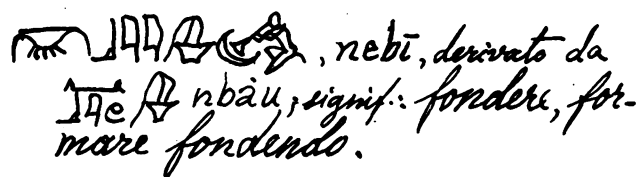 , nebī, derivato da
nbȧu; signif.: fondere, for-
mare fondendo.